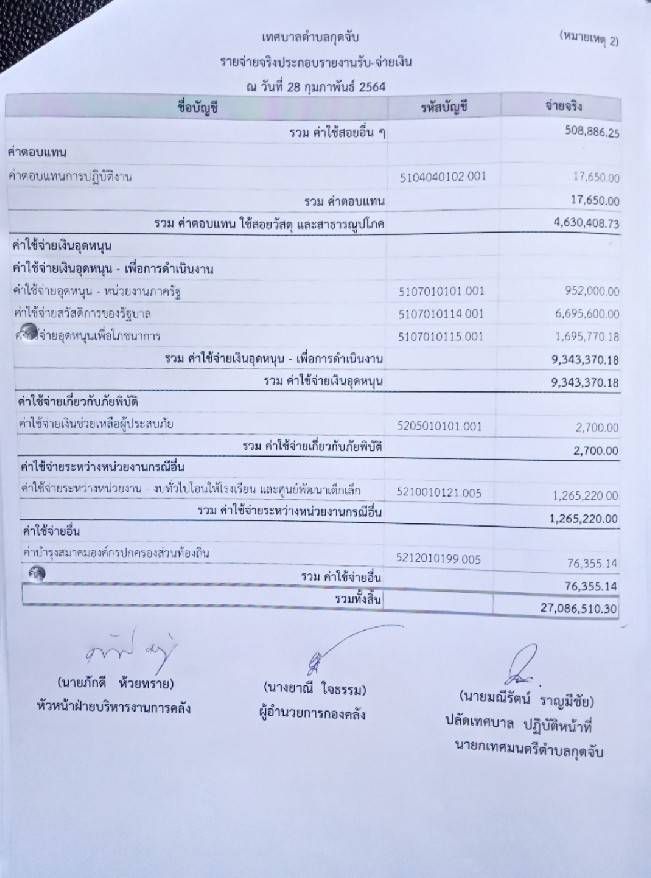 เทศบาลตำบลกุดจับ
(หมายเหตุ 2)
รายจ่ายจริงประกอบรายงานรับ-จ่ายเงิน
ณ วันที่ 28 กุมภาพันธ์ 2564
ชื่อบัญชี รหัสบัญชี จ่ายจริง
รวม ค่าใช้สอยอื่น ๆ 508,886.25
ค่าตอบแทน
ค่าตอบแทนการปฏิบัติงาน 5104040102.001 17,650.00
รวม ค่าตอบแทน 17,650.00
รวม ค่าตอบแทน ใช้สอยวัสดุ และสาธารณูปโภค 4,630,408.73
ค่าใช้จ่ายเงินอุดหนุน
ค่าใช้จ่ายเงินอุดหนุน - เพื่อการดำเนินงาน
ค่าใช้จ่ายอุดหนุน - หน่วยงานภาครัฐ 5107010101.001 952,000.00
ค่าใช้จ่ายสวัสดิการของรัฐบาล 5107010114.001 6,695,600.00
จ่ายอุดหนุนเพื่อโภชนาการ 5107010115.001 1,695,770.18
รวม ค่าใช้จ่ายเงินอุดหนุน - เพื่อการดำเนินงาน 9,343,370.18
รวม ค่าใช้จ่ายเงินอุดหนุน 9,343,370.18
ค่าใช้จ่ายเกี่ยวกับภัยพิบัติ
ค่าใช้จ่ายเงินช่วยเหลือผู้ประสบภัย 5205010101.001 2,700.00
รวม ค่าใช้จ่ายเกี่ยวกับภัยพิบัติ 2,700.00
ค่าใช้จ่ายระหว่างหน่วยงานกรณีอื่น
ค่าใช้จ่ายระหว่างหน่วยงาน - งบทั่วไปโอนให้โรงเรียน และศูนย์พัฒนาเด็กเล็ก 5210010121.005 1,265,220.00
รวม ค่าใช้จ่ายระหว่างหน่วยงานกรณีอื่น 1,265,220.00
ค่าใช้จ่ายอื่น
ค่าบำรุงสมาคมองค์กรปกครองส่วนท้องถิ่น 5212010199.005 76,355.14
รวม ค่าใช้จ่ายอื่น 76,355.14
รวมทั้งสิ้น 27,086,510.30
(นายภักดี ห้วยทราย) (นางยาณี ใจธรรม) (นายมณีรัตน์ ราญมีชัย)
หัวหน้าฝ่ายบริหารงานการคลัง ผู้อำนวยการกองคลัง ปลัดเทศบาล ปฏิบัติหน้าที่
นายกเทศมนตรีตำบลกุดจับ